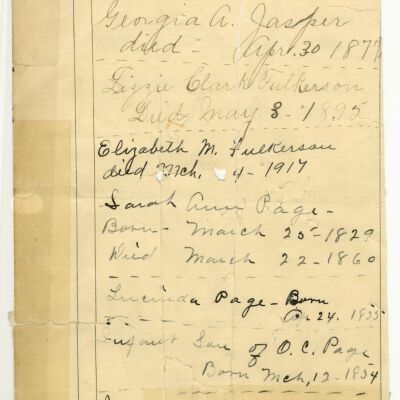 Georgia A. Jasper
died - Apr. 30 1877
Lizzie Clark Fulkerson
Died May 8 - 1895
Elizabeth M. Fulkerson
died Mch. 4 - 1917
Sarah Ann Page -
Born - March 25 - 1829
Died March 22 - 1860
Lucinda Page - Born
24. 1855
Infant Son of O. C. Page
Born Mch, 12 - 1854